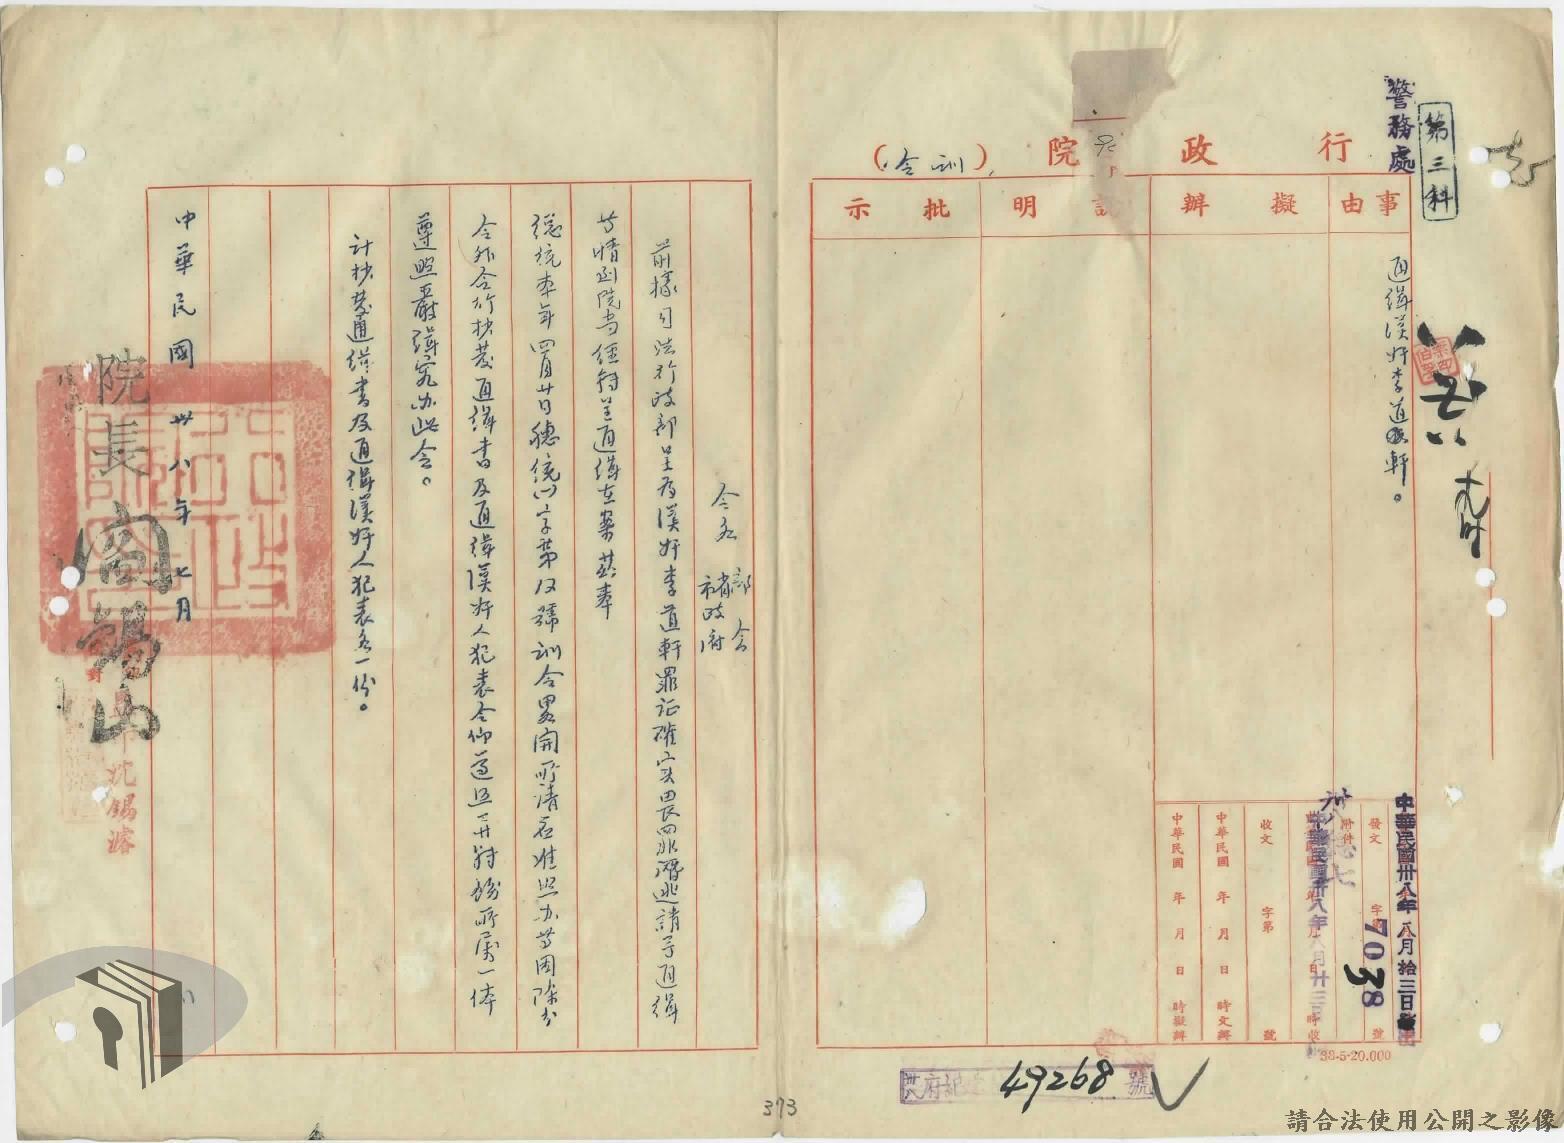 第三科
警務處
行政院
(訓令)
事由
擬辦
說明
批示
通緝漢奸李道軒。
發文
字第
號
附件
收文
字第
號
中華民國 年 月 日 時文辦
中華民國 年 月 日 時擬辦
中華民國卅八年八月拾三日
7038
中華民國卅八年八月廿三
38-5-20.000
49268
號
令各
部會
省政府
前據司法行政部呈為漢奸李道軒罪証確实畏罪潛逃請予通緝
等情到院当經轉呈通緝在案茲奉
總統本年四月廿日穗統
字第
號訓令畧開所請应准照办等因除分
令外合行抄發通緝書及通緝漢奸人犯表令仰遵照并轉飭所屬一体
遵照嚴緝究办此令。
計抄發通緝書及通緝漢奸人犯表各一份。
中華民國卅八年七月
院長閻錫山
對
沈錫濬
373
請合法使用公開之影像